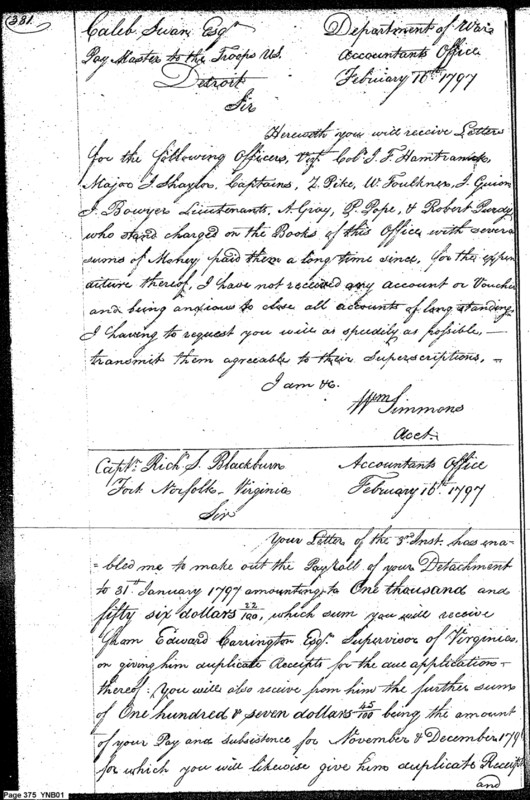 381.
Caleb Swan Esqr. Department of War
Pay Master to the Troops U.S. Accountants Office
Detroit February 16th 1797
Sir
Herewith you will receive Letters
for the following Officers, Vizt. Colo. J. F. Hamtramck,
Major J Shaylor, Captains, Z. Pike, W. Faulkner, J. Guion
J. Bowyer Lieutenants, A. Gray, P. Pope, & Robert Purdy,
who stand charged on the Books of this Office with several
sums of Money paid them a long time since, for the expen
diture thereof, I have not received any account or Voucher
and being anxious to close all accounts of long standing
I having to request you will as speedily as possible, —
transmit them agreeable to their Superscriptions. —
I am &c.
Wm Simmons
Acct.
Captn. Richd. S. Blackburn Accountants Office
Fort Norfolk - Virginia February 16th 1797
Sir
Your Letter of the 3rd Inst. has ena
-bled me to make out the Payroll of your Detachment
to 31st January 1797 amounting to One thousand and
fifty six dollars 22/100, which sum you will receive
from Edward Carrington Esqr. Supervisor of Virginia
on giving him duplicate Receipts for the due application
thereof: You will also receive from him the further sum
of One hundred & seven dollars 45/100 being the amount
of your Pay and subsistence for November & December 179
for which you will likewise give him duplicate Receipts
and
Page 375 YNB01